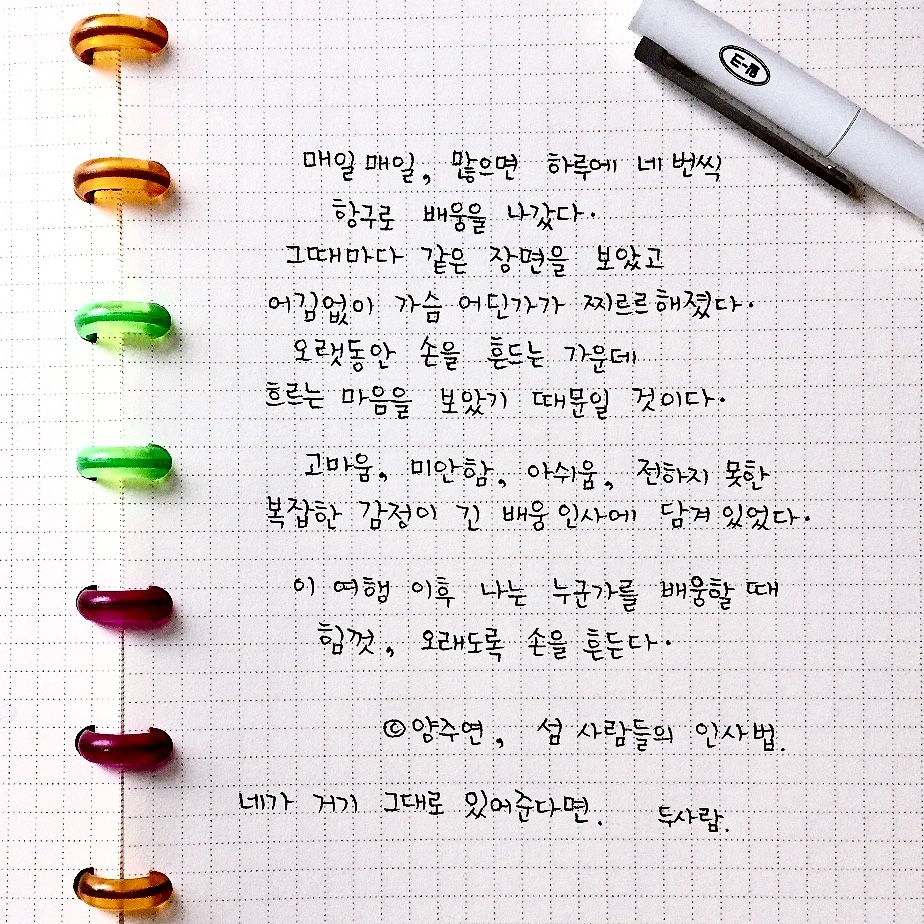 매일매일, 많으면 하루에 네번씩
항구로 배웅을 나갔다.
그때마다 같은 장면을 보았고
어김없이 가슴 어딘가가 찌르르해졌다.
오랫동안 손을 흔드는 가운데
흐르는 마음을 보았기 때문일 것이다.
고마움, 미안함, 아쉬움, 전하지 못한
복잡한 감정이 긴 배웅 인사에 담겨 있었다.
이 여행 이후 나는 누군가를 배웅할 때
힘껏, 오래도록 손을 흔든다.
©양주연, 섬 사람들의 인사법.
네가 거기 그대로 있어준다면. 두사람.